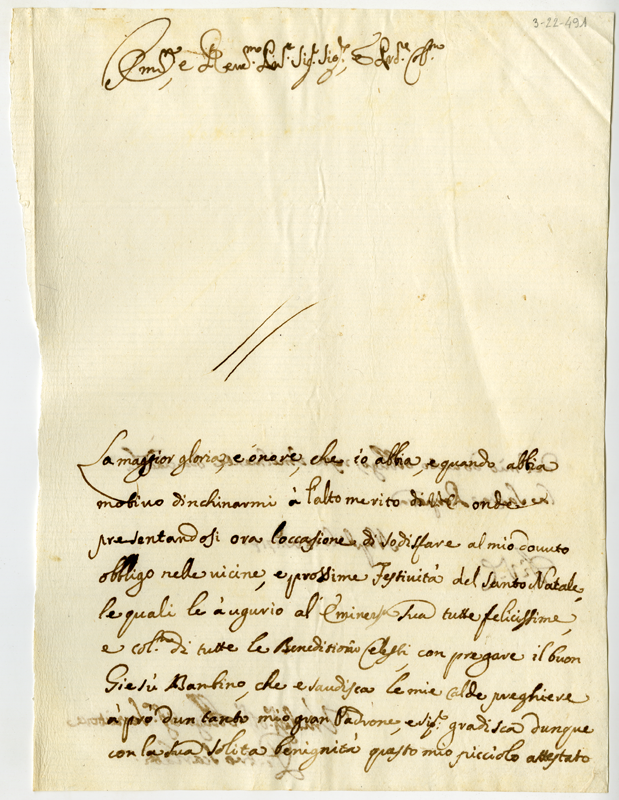 3-22-49A
Em.mo e Rev.mo Pn.pe Sig.r Sig.r e Pad.e Col.mo
La maggior gloria, e onore, che io abbia, e quando abbia
motivo dinchinarmi à l'alto merito di V.E. onde
presentandosi ora l'occasione di sodisfare al mio dovuto
obbligo nelle vicine, e prossime Festività del Santo Natale,
le quali le àugurio al'Eminenza Sua tutte felicissime,
e col.me di tutte le Beneditioni Celesti, con pregare il buon
Giesù Bambino, che esaudisca le mie calde preghiere
à prò dun tanto mio gran Padrone, e sig.re gradisca dunque
con la sua solita benignità questo mio picciolo attestato